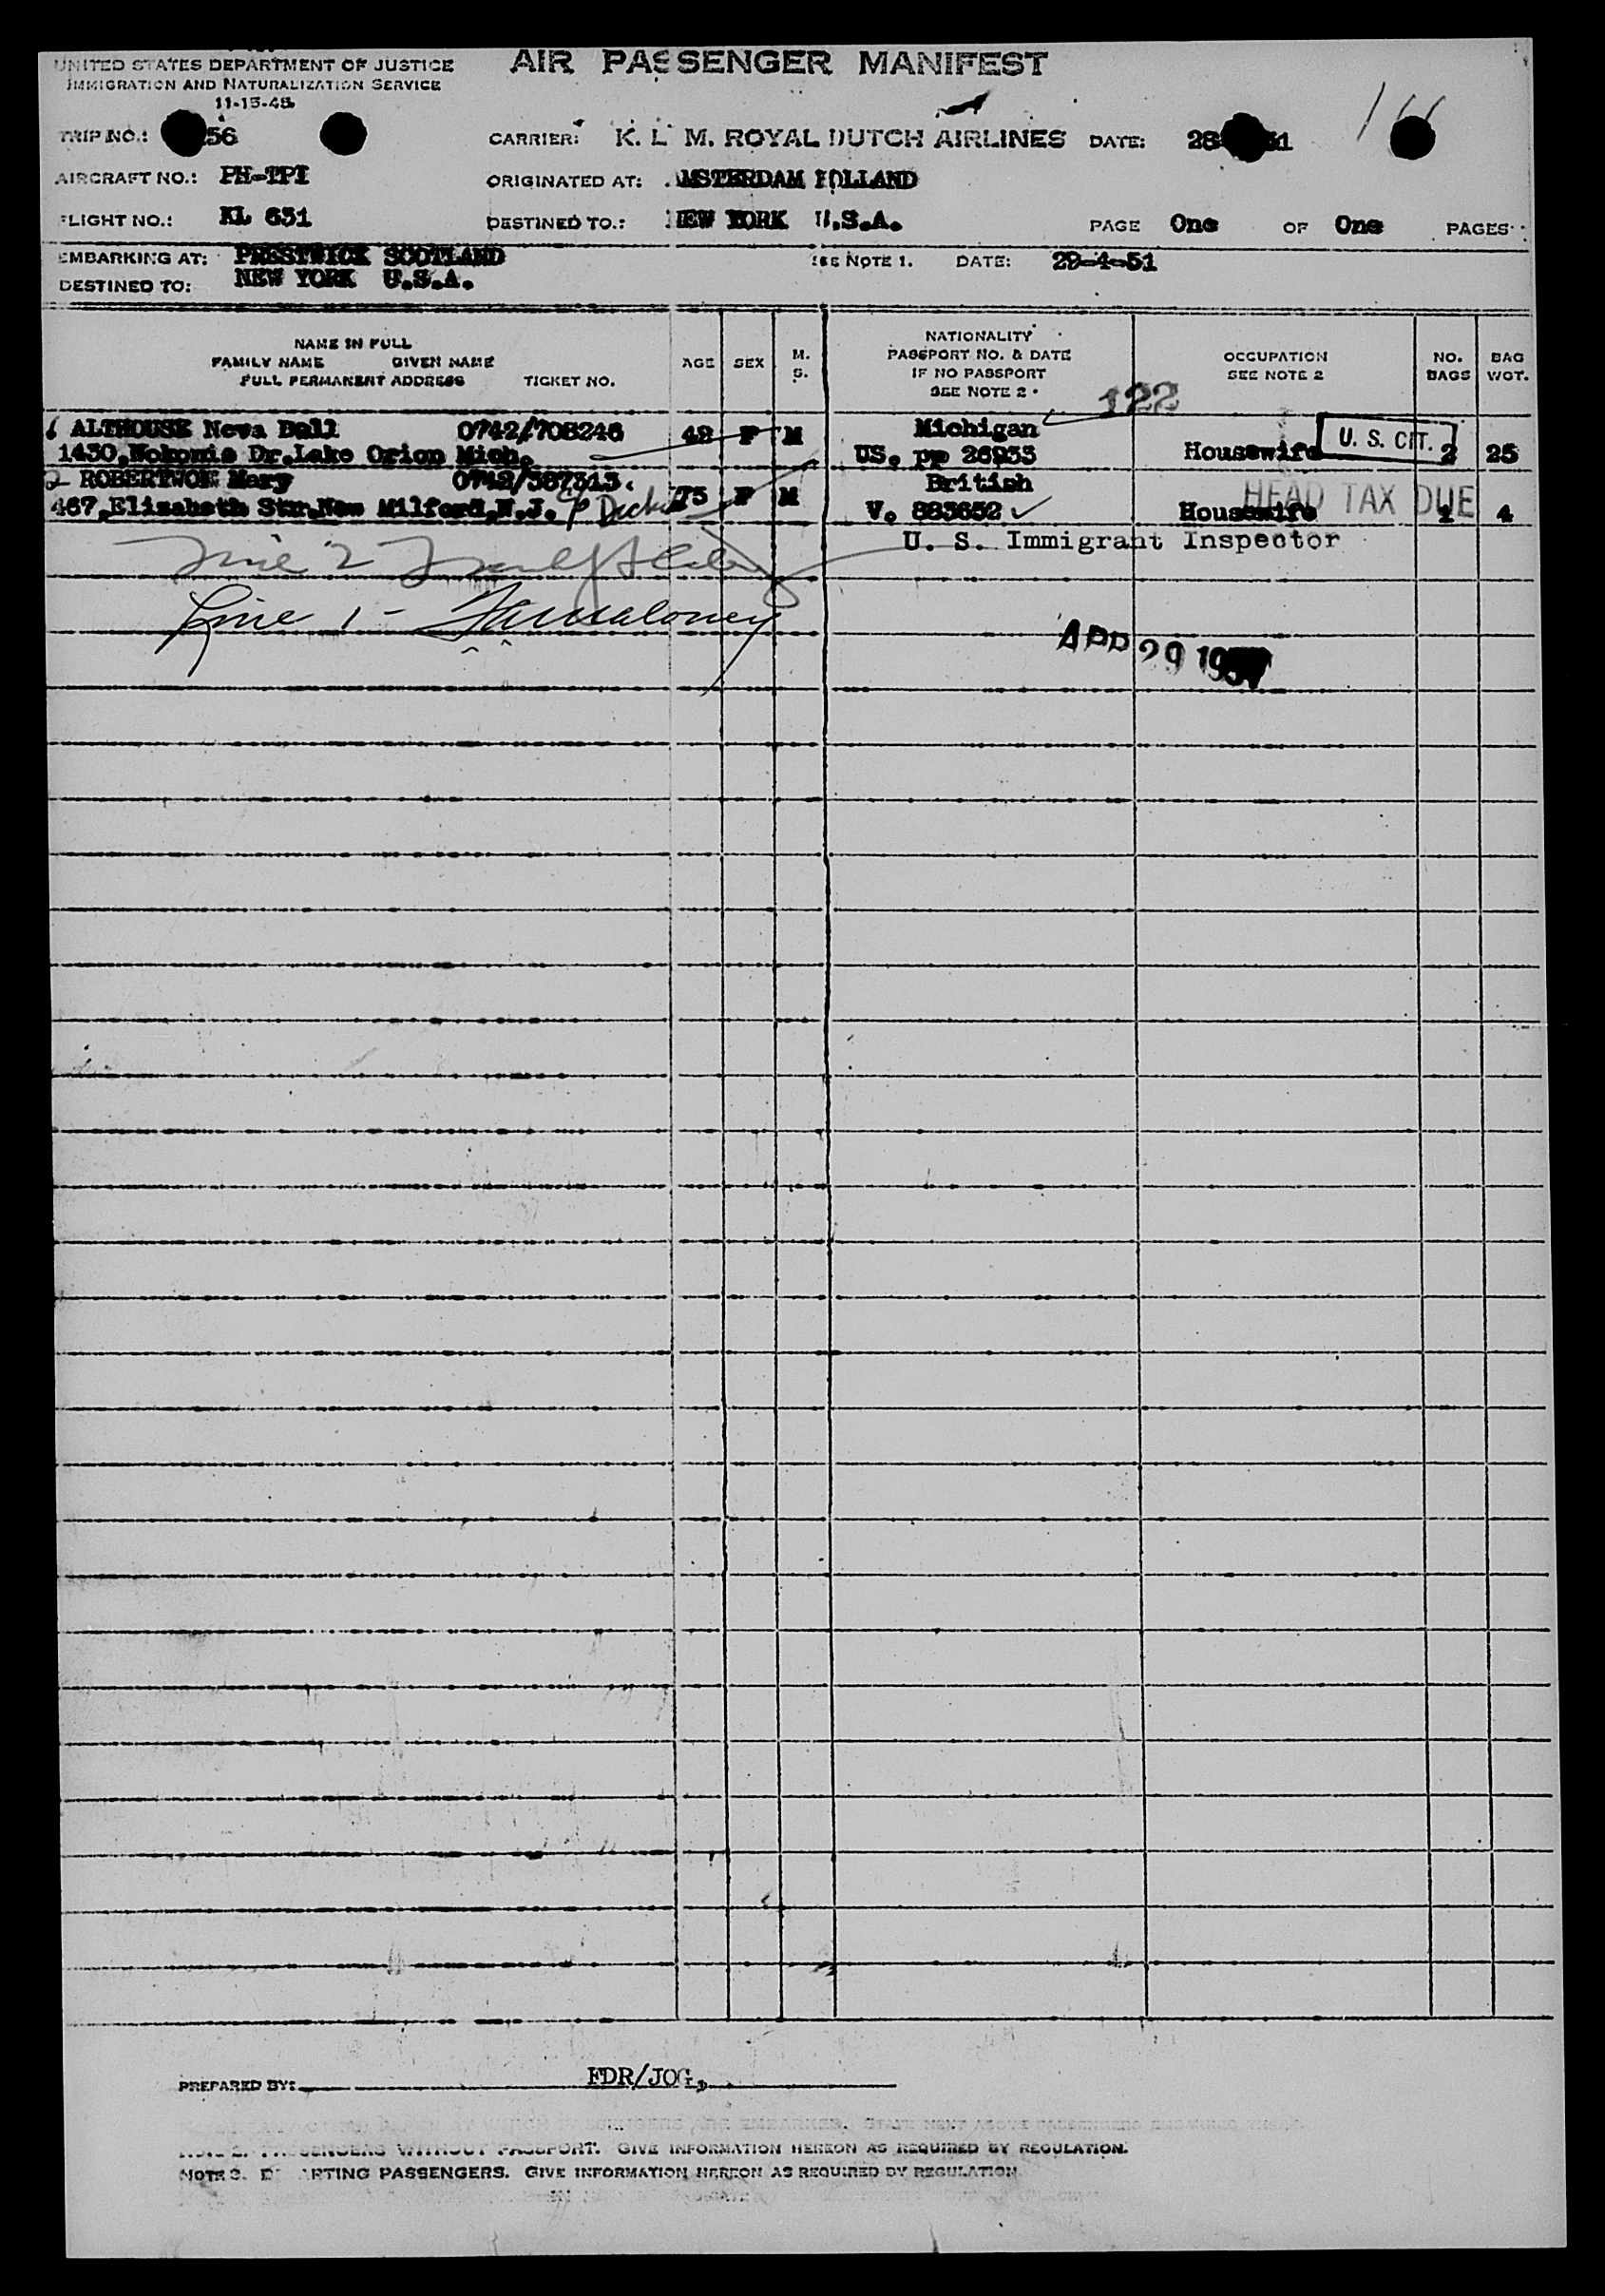 UNITED STATES DEPARTMENT OF JUSTICE
IMMIGRATION AND NATURALIZATION SERVICE
11-15-48
AIR PASSENGER MANIFEST
TRIP NO.: 56
CARRIER: K. L M. ROYAL DUTCH AIRLINES DATE: 28 51
AIRCRAFT NO.: PH-TPI
ORIGINATED AT: AMSTERDAM HOLLAND
FLIGHT NO.: KL 631
DESTINED TO.: NEW YORK U.S.A.
PAGE One OF One PAGES
EMBARKING AT: PRESTWICK SCOTLAND
SEE NOTE 1. DATE: 29-4-51
DESTINED TO: NEW YORK U.S.A.
NAME IN FULL
FAMILY NAME GIVEN NAME
FULL PERMANENT ADDRESS TICKET NO.
AGE SEX M. S.
NATIONALITY
PASSPORT NO. & DATE
IF NO PASSPORT
SEE NOTE 2
OCCUPATION
SEE NOTE 2
NO. BAGS
BAG WGT.
122
1 ALTHOUSE Neva Ball 0742/708246 42 F M Michigan
1430, Nokomis Dr. Lake Orion Mich. US. pp 26933 Housewife U. S. CIT. 2 25
2 ROBERTWON Mary 0742/387313. 75 F M British
467, Elizabeth Str. New Milford, N.J. V. 883652 ✓ Housewife HEAD TAX DUE 1 4
U. S. Immigrant Inspector
Line 2
Line 1 - Maloney
APR 29 1951
PREPARED BY: FDR/JOG,
PASSENGERS WITHOUT PASSPORT. GIVE INFORMATION HEREON AS REQUIRED BY REGULATION.
NOTE 3. DEPARTING PASSENGERS. GIVE INFORMATION HEREON AS REQUIRED BY REGULATION